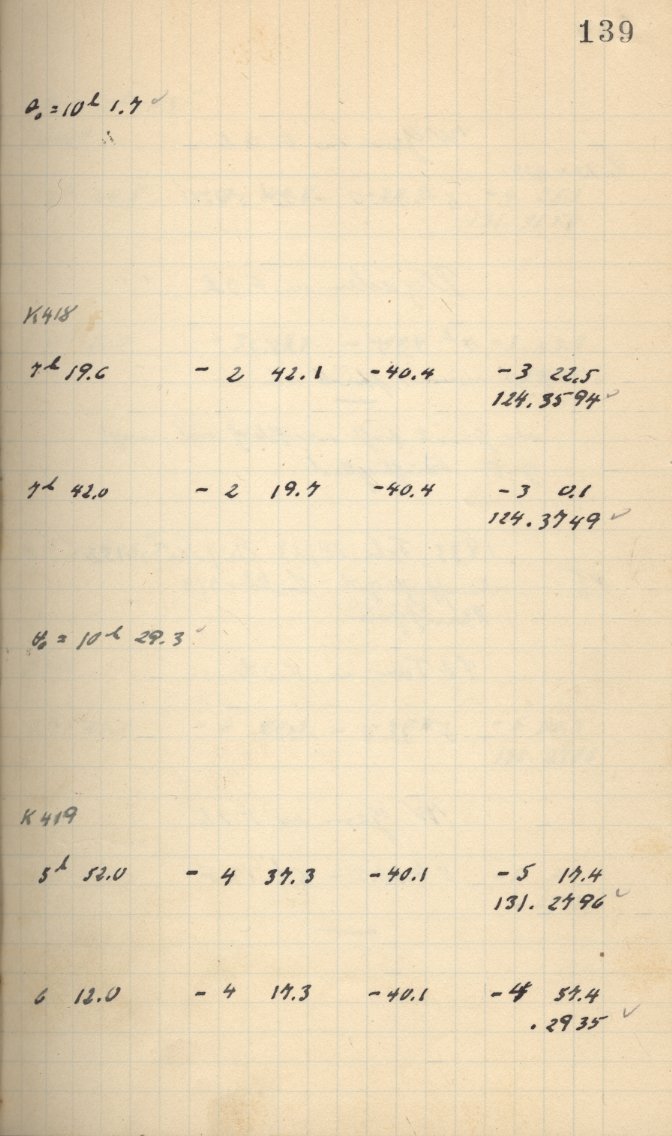 139
θ₀ = 10ʰ 1.7 ✓
K418
7ʰ 19.6 - 2 42.1 -40.4 -3 22.5
124.3594 ✓
7ʰ 42.0 - 2 19.7 -40.4 -3 0.1
124.3749 ✓
θ₀ = 10ʰ 29.3 ✓
K419
5ʰ 52.0 - 4 37.3 -40.1 -5 17.4
131.2796 ✓
6 12.0 - 4 17.3 -40.1 -4 57.4
.2935 ✓